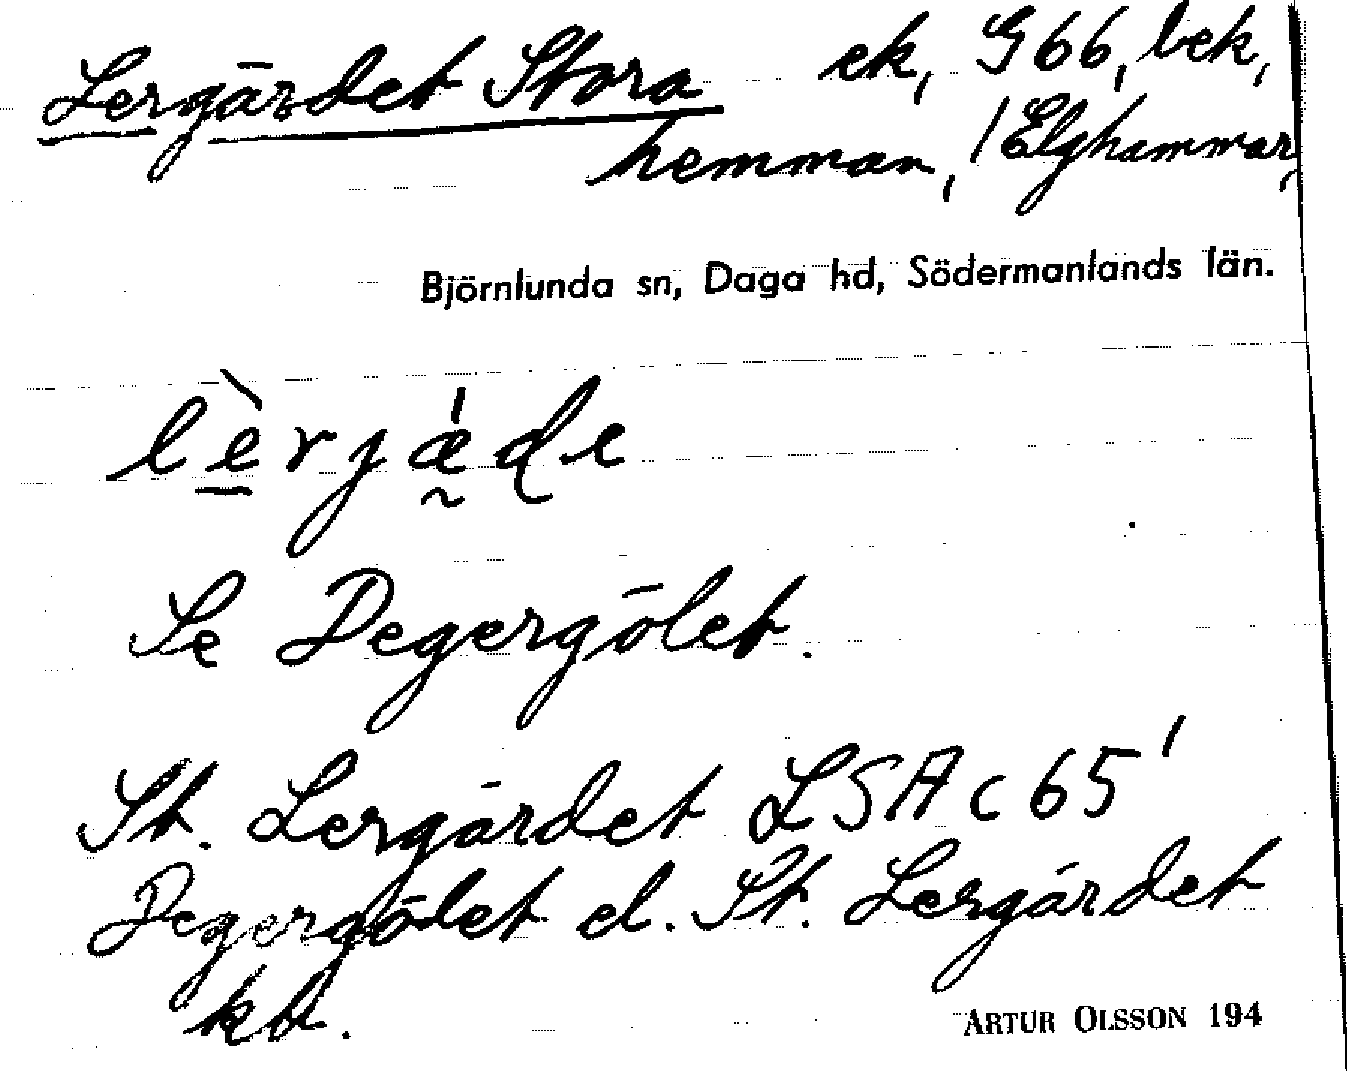 Lergärdet Stora ek, G66, bek,
hemman, / Elghammar,
Björnlunda sn, Daga hd, Södermanlands län.
lèrjǽ̰de
Se Degergölet.
St. Lergärdet LSA c 65'
Degergölet el. St. Lergärdet
kb.
ARTUR OLSSON 194